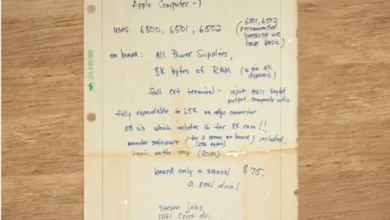 Apple Computer -1
uses 6800, 6501, 6502 (6501, 6502 recommended because we have basic)
on board: All Power Supplies,
8K bytes of RAM (16 pin 4K dynamic)
full crt terminal - input: ASCII keybd
output: composite video
fully expandable to 65K via edge connector
58 IC's which includes 16 for 8K ram!!
monitor software (for 2 proms on board) included,
(256 bytes)
basic on the way (ROMs)
board only + manual $75.
a real deal
steven jobs
11161 Crist dr.